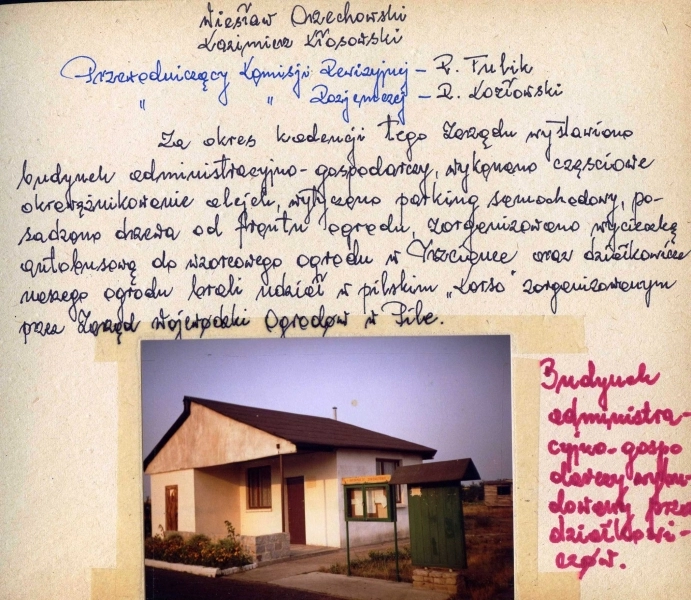 Wiesław Orzechowski
Kazimierz Kłosowski
Przewodniczący Komisji Rewizyjnej – R. Fubik
" " Rozjemczej – R. Kozłowski
Za okres kadencji tego Zarządu wystawiono
budynek administracyjno-gospodarczy, wykonano częściowe
okrawężnikowanie alejek, wytyczono parking samochodowy, po-
sadzono drzewa od frontu ogrodu, zorganizowano wycieczkę
autobusową do wzorcowego ogrodu w Trzciance oraz działkowicze
naszego ogrodu brali udział w pilskim „Korso" zorganizowanym
przez Zarząd Wojewódzki Ogrodów w Pile.
Budynek
administra-
cyjno-gospo
darczy wybu-
dowany przez
działkowi-
czów.